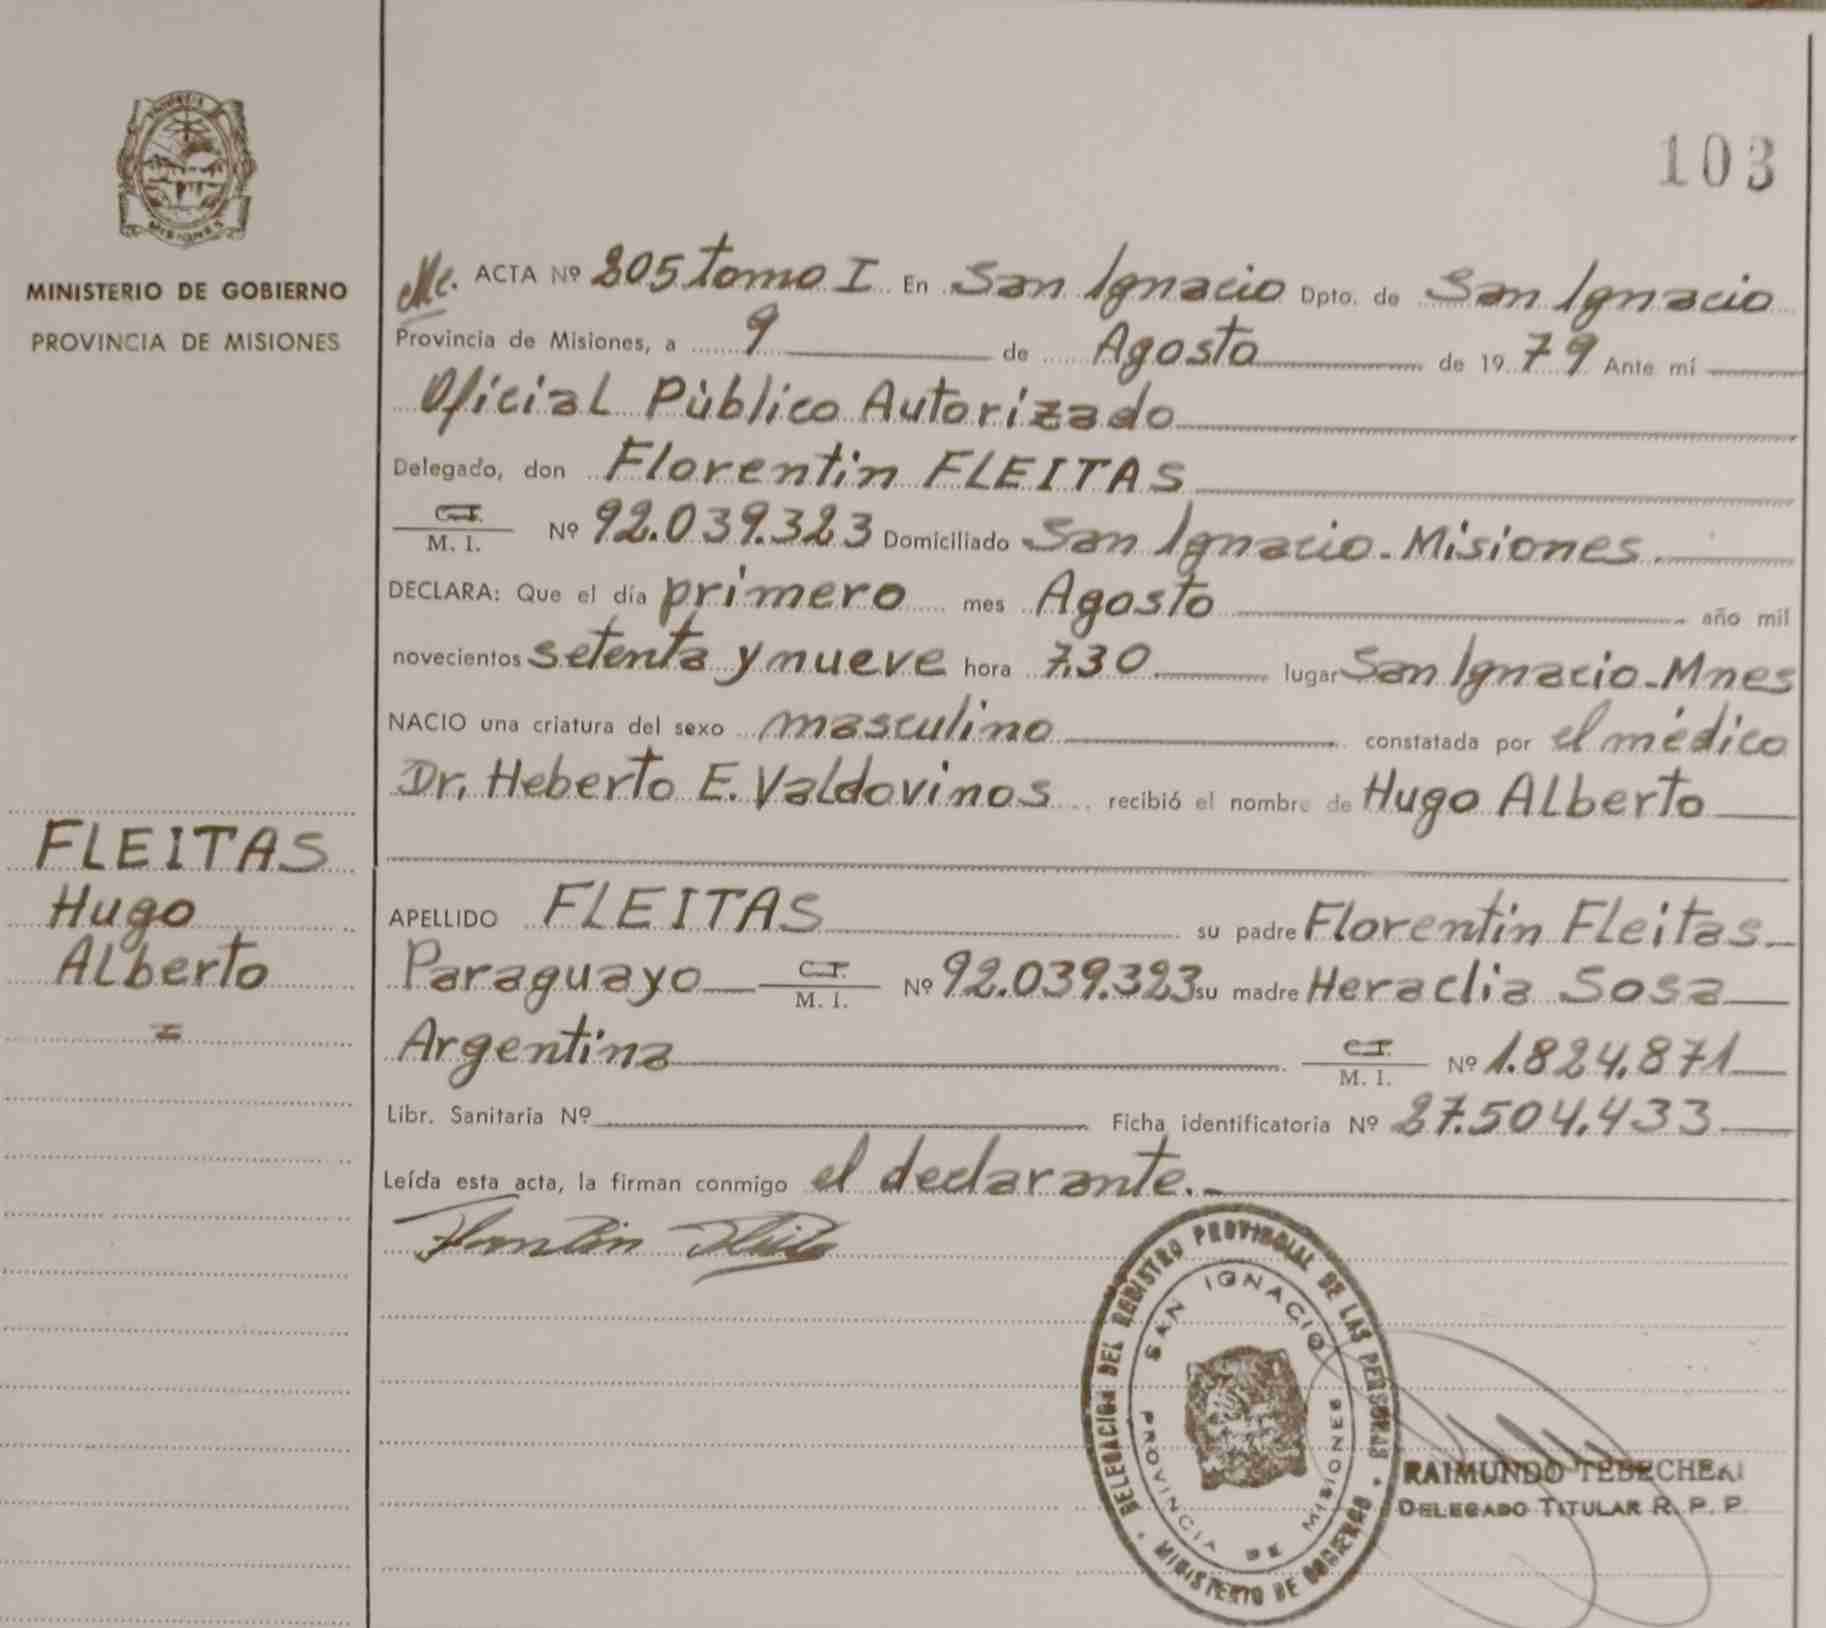 103
PROVINCIA
MISIONES
MINISTERIO DE GOBIERNO
PROVINCIA DE MISIONES
FLEITAS
Hugo
Alberto
ACTA Nº 205 tomo I En San Ignacio Dpto. de San Ignacio
Provincia de Misiones, a 9 de Agosto de 1979 Ante mí
Oficial Público Autorizado
Delegado, don Florentin FLEITAS
C.I.
M. I. Nº 92.039.323 Domiciliado San Ignacio - Misiones
DECLARA: Que el día primero mes Agosto año mil
novecientos setenta y nueve hora 7.30 lugar San Ignacio - Mnes
NACIO una criatura del sexo masculino constatada por el médico
Dr. Heberto E. Valdovinos recibió el nombre de Hugo Alberto
APELLIDO FLEITAS su padre Florentin Fleitas
Paraguayo C.I. M. I. Nº 92.039.323 su madre Heraclia Sosa
Argentina C.I. M. I. Nº 1.824.871
Libr. Sanitaria Nº Ficha identificatoria Nº 27.504.433
Leída esta acta, la firman conmigo el declarante.-
Florentin Fleitas
DELEGACION DEL REGISTRO PROVINCIAL DE LAS PERSONAS
SAN IGNACIO
PROVINCIA DE MISIONES
MINISTERIO DE GOBIERNO
RAIMUNDO
DELEGADO TITULAR R. P. P.